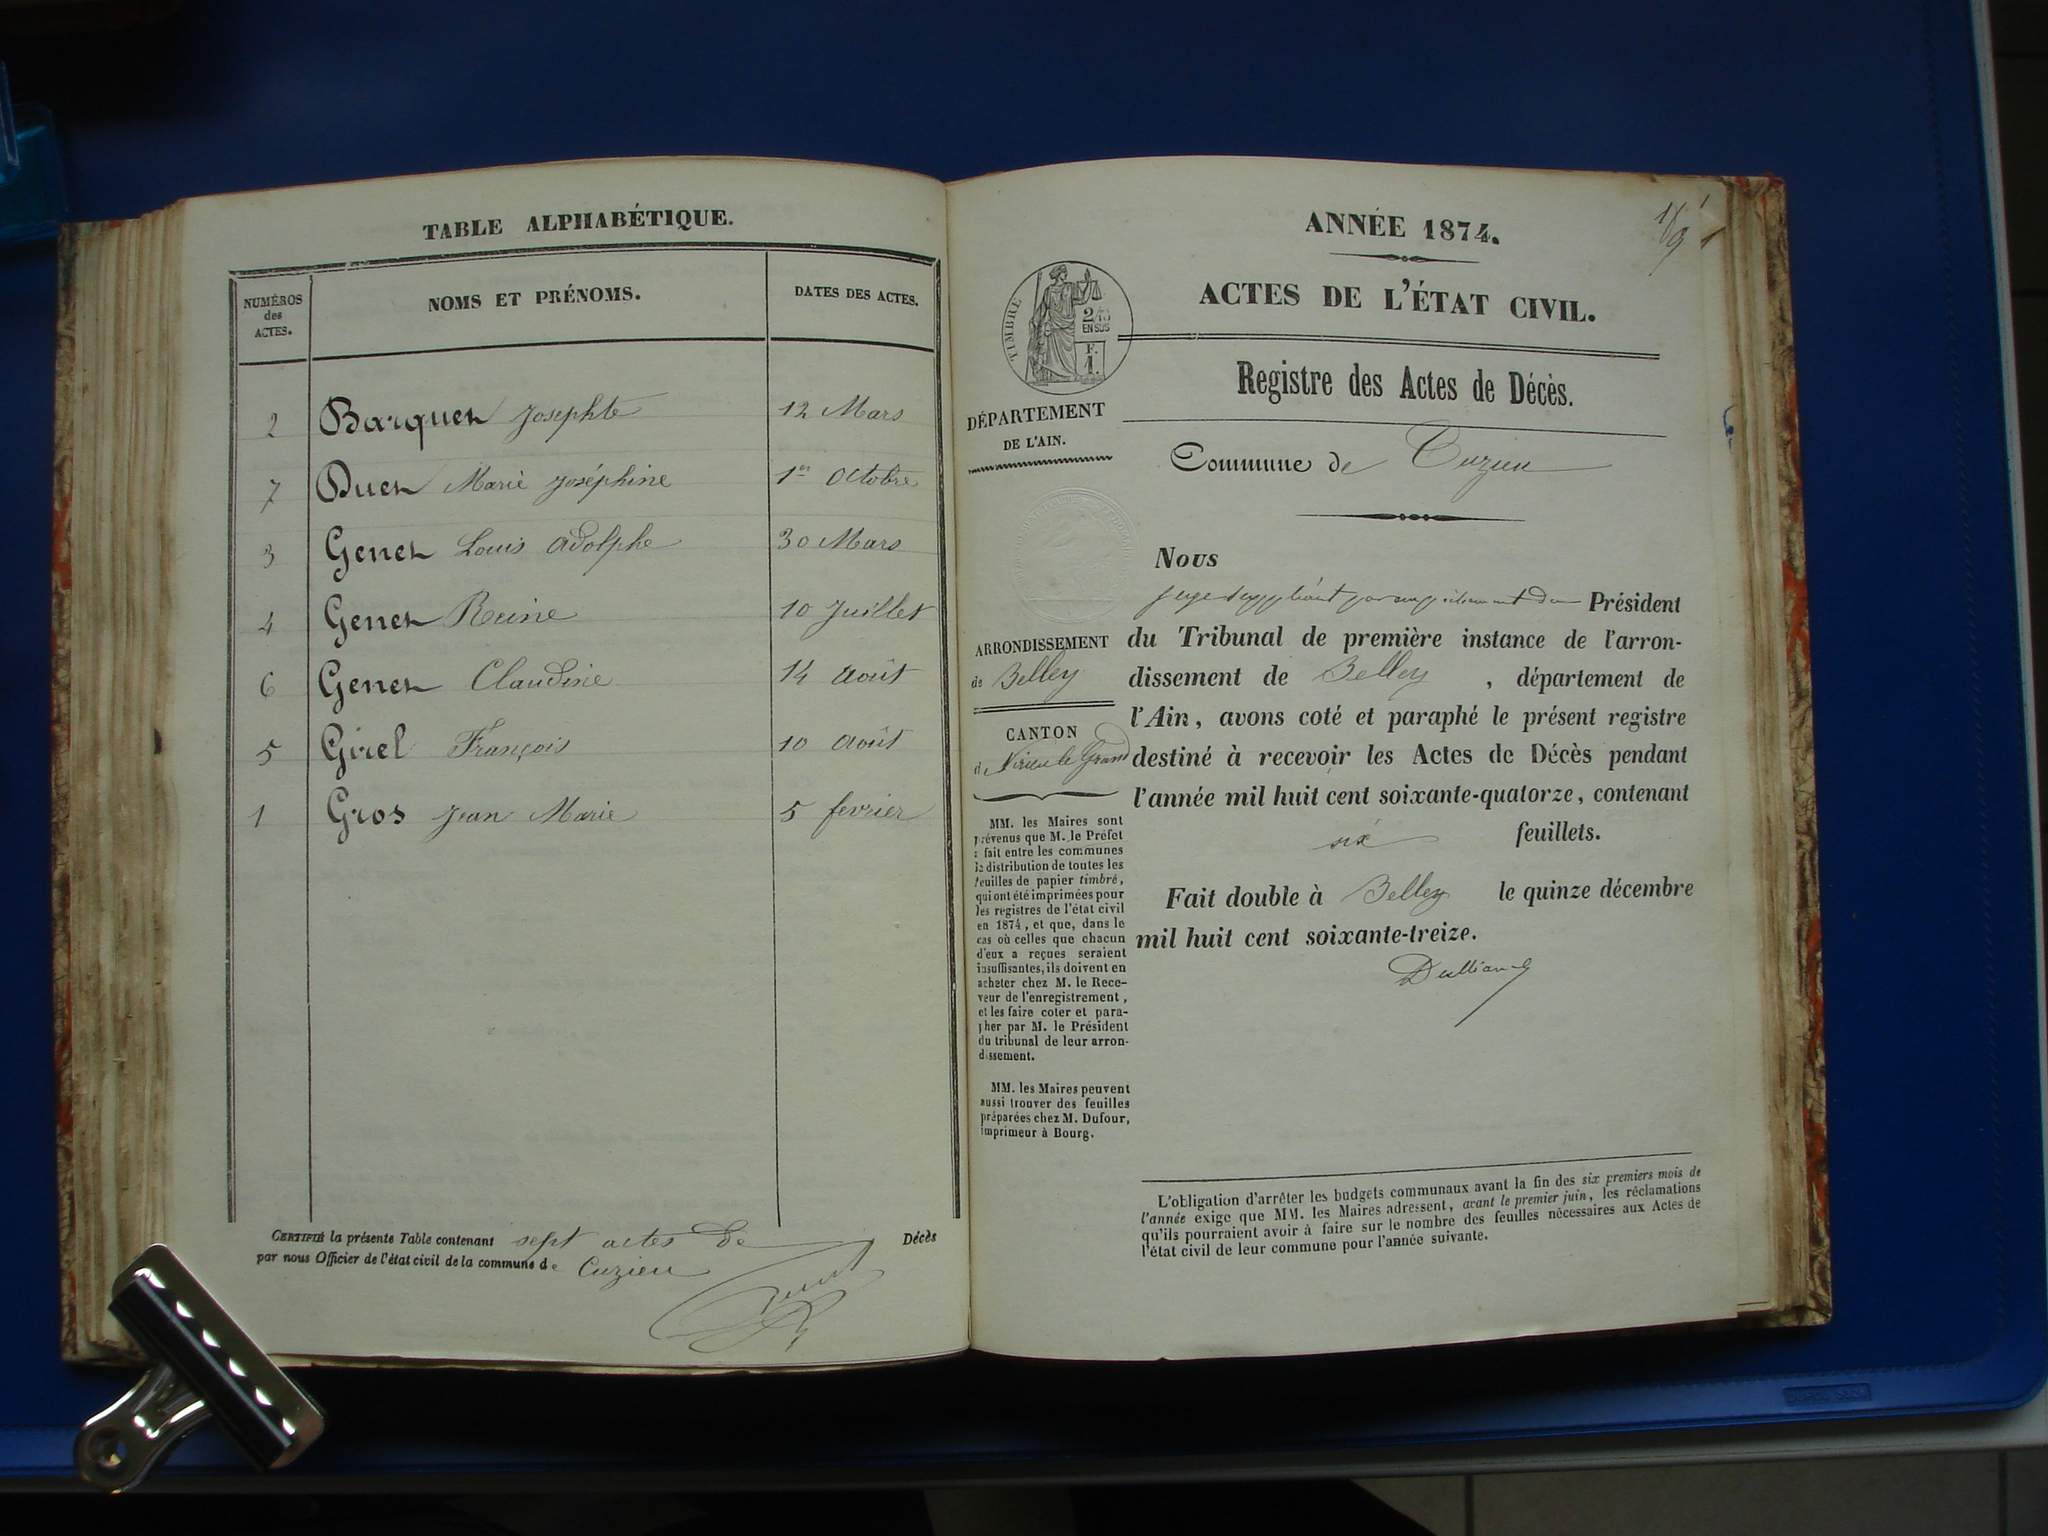 TABLE ALPHABÉTIQUE.
NUMÉROS
des
ACTES.
NOMS ET PRÉNOMS.
DATES DES ACTES.
2 Barquet Josephte 12 Mars
7 Buet Marie Joséphine 1er Octobre
3 Genet Louis Adolphe 30 Mars
4 Genet Reine 10 Juillet
6 Genet Claudine 14 Août
5 Girel François 10 Août
1 Gros Jean Marie 5 fevrier
CERTIFIÉ la présente Table contenant sept actes de Décès
par nous Officier de l'état civil de la commune de Cuzieu
ANNÉE 1874.
ACTES DE L'ÉTAT CIVIL.
TIMBRE
2/10
EN SUS
F.
1.
Registre des Actes de Décès.
DÉPARTEMENT
DE L'AIN.
Commune de Cuzieu
ARRONDISSEMENT
de Belley
CANTON
de Virieu le Grand
MM. les Maires sont
prévenus que M. le Préfet
a fait entre les communes
la distribution de toutes les
feuilles de papier timbré,
qui ont été imprimées pour
les registres de l'état civil
en 1874, et que, dans le
cas où celles que chacun
d'eux a reçues seraient
insuffisantes, ils doivent en
acheter chez M. le Rece-
veur de l'enregistrement,
et les faire coter et para-
pher par M. le Président
du tribunal de leur arron-
dissement.
MM. les Maires peuvent
aussi trouver des feuilles
préparées chez M. Dufour,
imprimeur à Bourg.
Nous
juge suppléant par empêchement du Président
du Tribunal de première instance de l'arron-
dissement de Belley, département de
l'Ain, avons coté et paraphé le présent registre
destiné à recevoir les Actes de Décès pendant
l'année mil huit cent soixante-quatorze, contenant
six feuillets.
Fait double à Belley le quinze décembre
mil huit cent soixante-treize.
L'obligation d'arrêter les budgets communaux avant la fin des six premiers mois de
l'année exige que MM. les Maires adressent, avant le premier juin, les réclamations
qu'ils pourraient avoir à faire sur le nombre des feuilles nécessaires aux Actes de
l'état civil de leur commune pour l'année suivante.